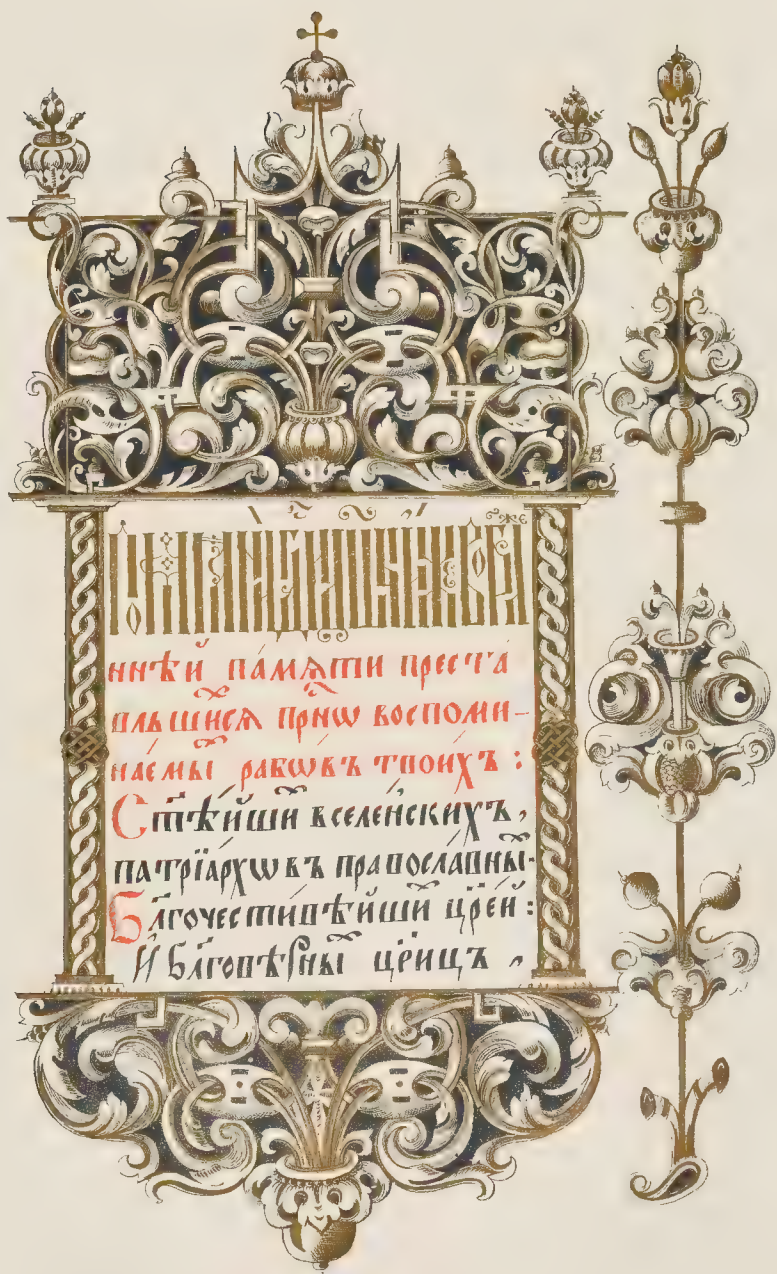 же
ннѣй па́мѧти преста́
вльшиⷯсѧ прⷭнѡ воспоми-
на́емыⷯ рабѡ́въ твои́хъ :
Ст҃ѣ́йшиⷯ вселе́нскихъ,
патрїа́рхѡвъ правосла́вныⷯ.
Бл҃гочести́вѣйшиⷯ цр҃е́й :
И бл҃говѣ́рныⷯ цр҃и́цъ ,